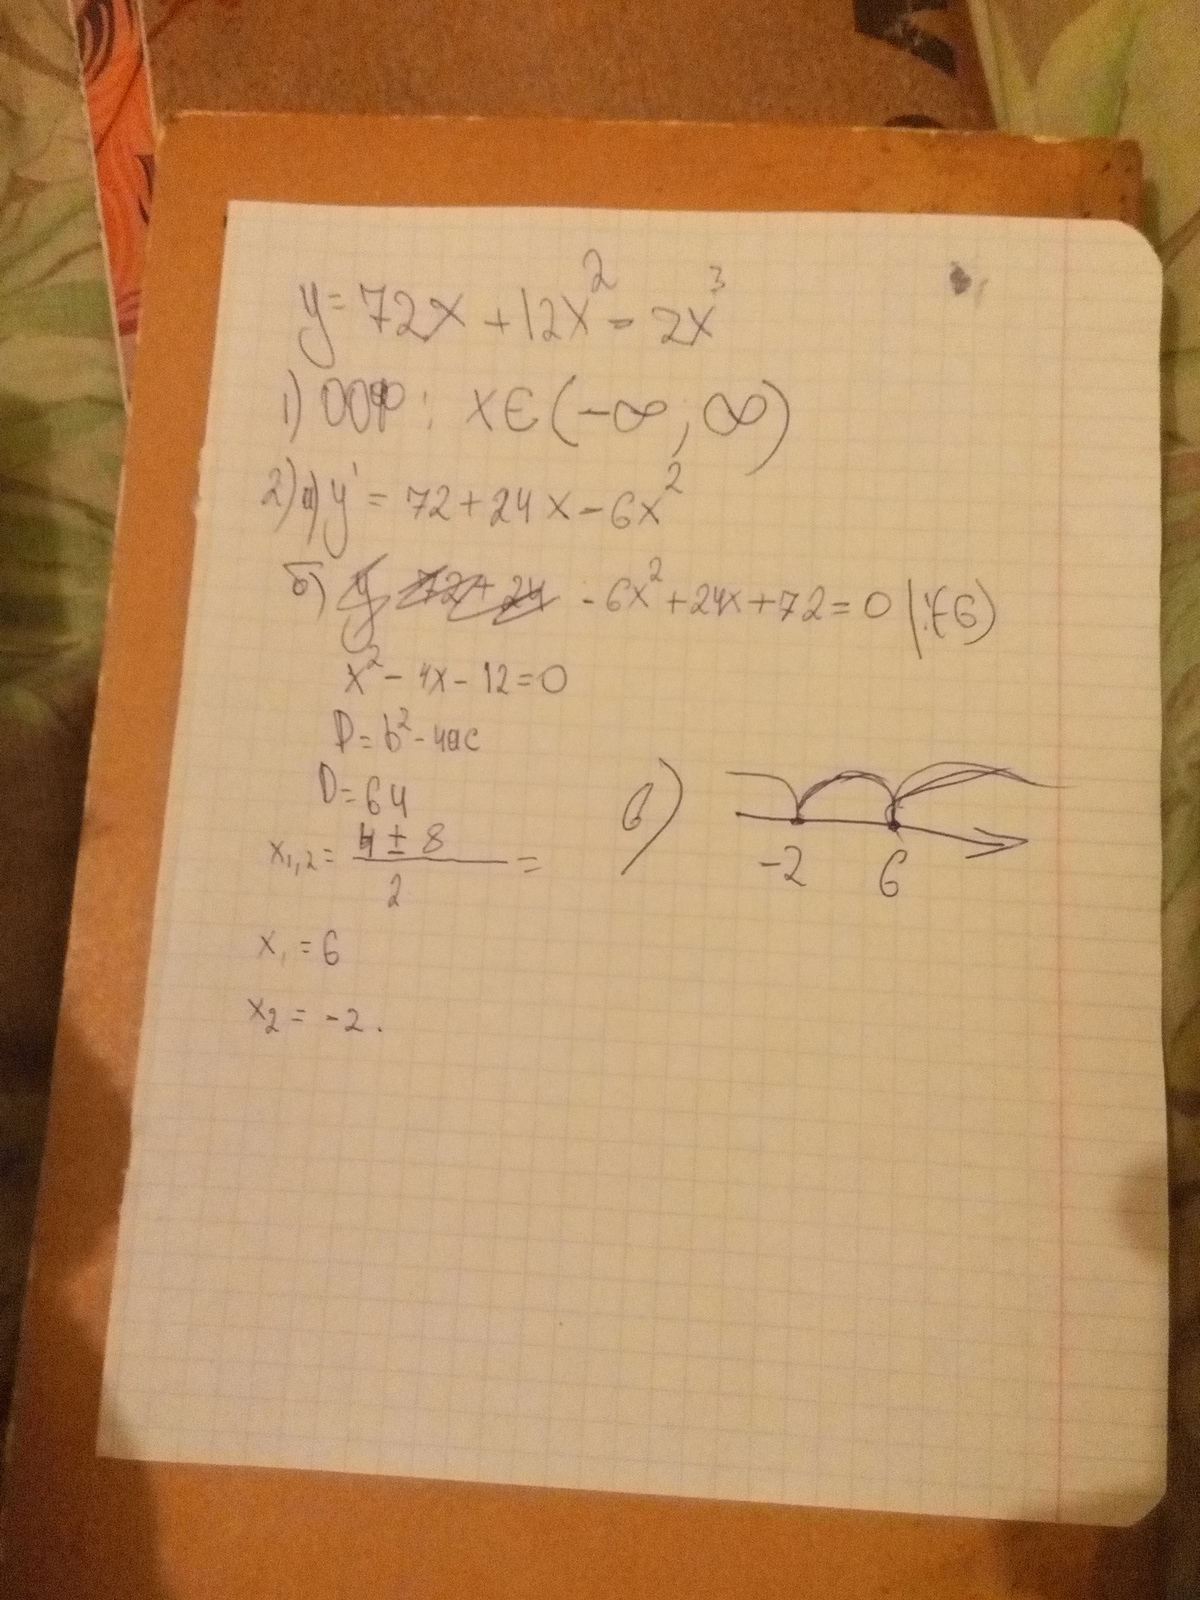 y = 72x + 12x² - 2x³
1) ООФ : x∈(-∞; ∞)
2) а) y' = 72 + 24x - 6x²
б) -6x² + 24x + 72 = 0 |:(-6)
x² - 4x - 12 = 0
D = b² - 4ac
D = 64
x₁,₂ = (4 ± 8)/2 =
x₁ = 6
x₂ = -2.
в)
-2 6